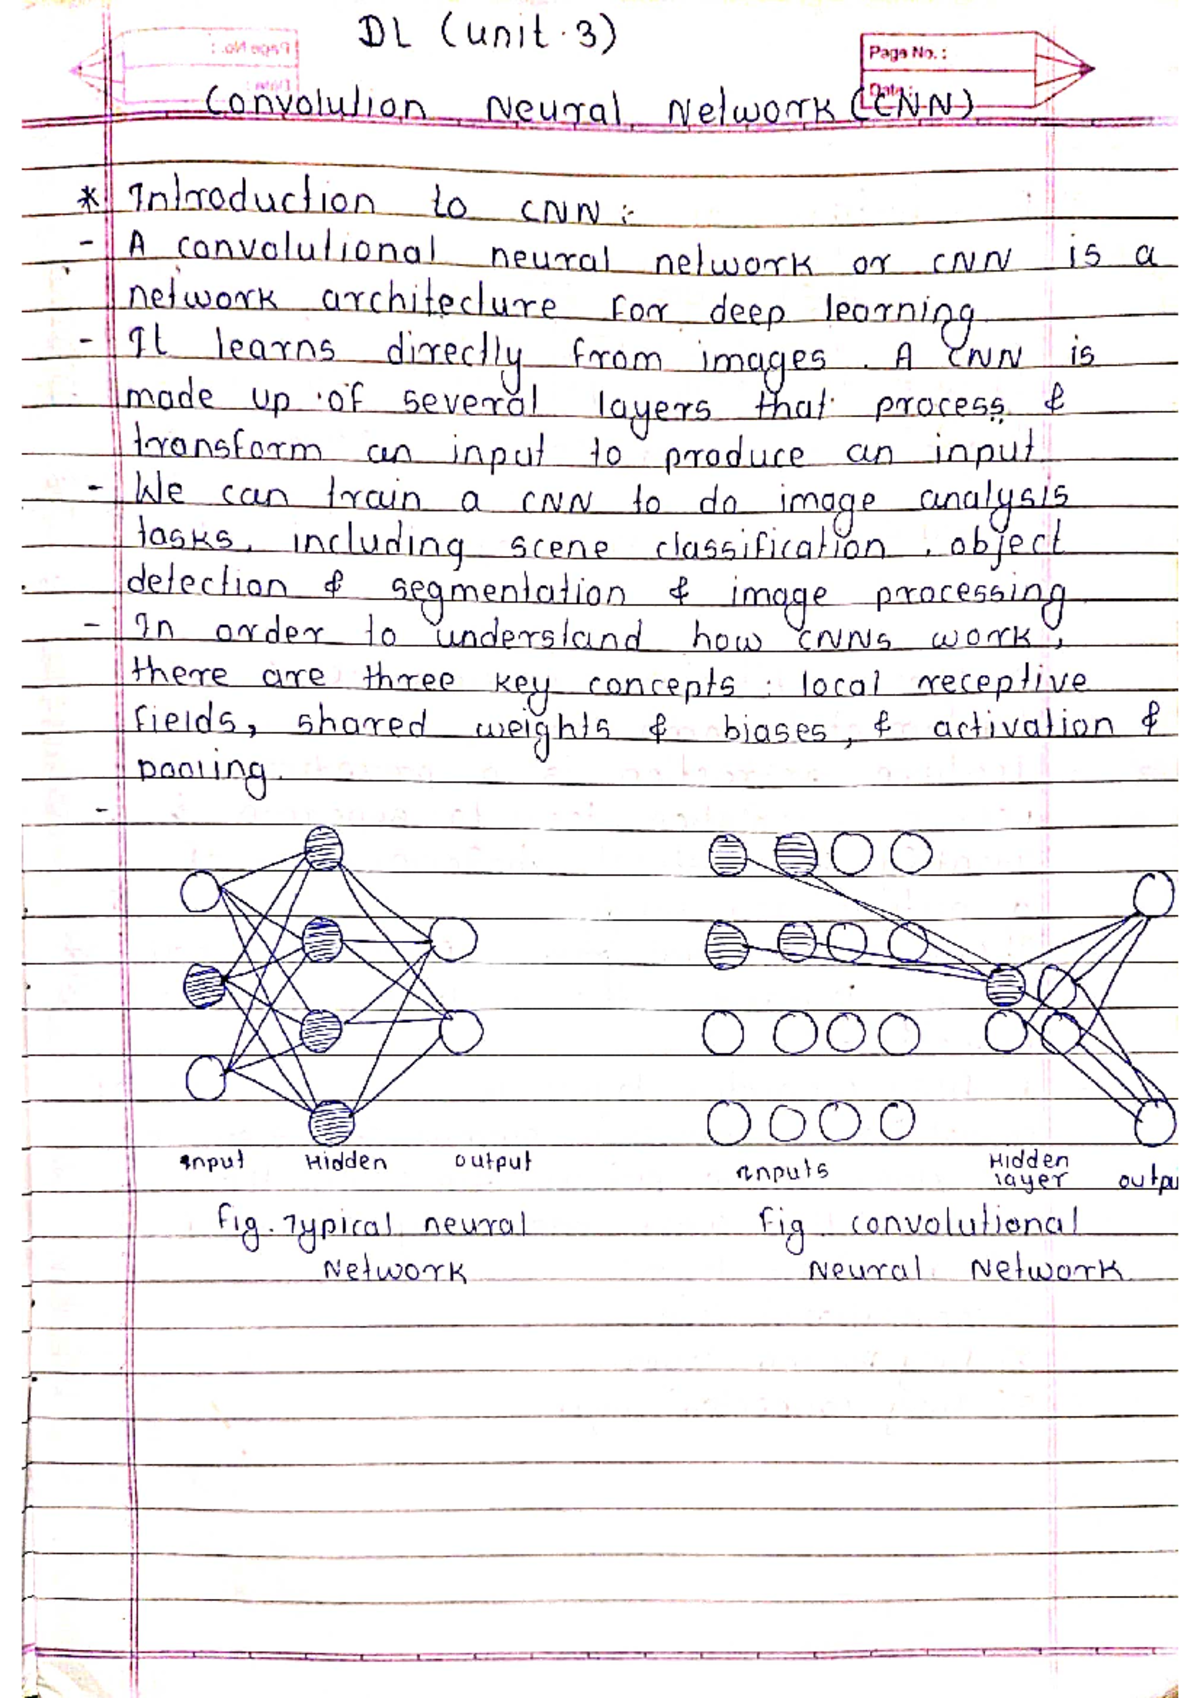 DL (unit.3)
Page No.:
Convolution Neural Network (CNN)
* Introduction to CNN :-
- A convolutional neural network or CNN is a
network architecture for deep learning
- It learns directly from images. A CNN is
made up of several layers that process &
transform an input to produce an input
- We can train a CNN to do image analysis
tasks, including scene classification, object
detection & segmentation & image processing.
- In order to understand how CNNs work,
there are three key concepts : local receptive
fields, shared weights & biases, & activation &
pooling.
-
Input Hidden output
Inputs Hidden layer outpu
fig. Typical neural Network
Fig convolutional Neural Network